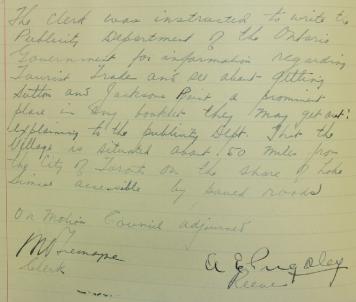 The Clerk was instructed to write the
Publicity Department of the Ontario
Government for information regarding
Tourist Trade and see about getting
Sutton and Jacksons Point a prominent
place in any booklet they may get out:
explaining to the publicity Dept. that the
Village is situated about 50 miles from
the City of Toronto on the shore of Lake
Simcoe accessible by paved roads
On Motion Council adjourned
Clerk
A E Pugsley
Reeve